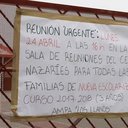 REUNIÓN URGENTE: LUNES
24 ABRIL A LAS 16h EN LA
SALA DE REUNIONES DEL CE
NAZARÍES PARA TODAS LAS
FAMILIAS DE NUEVA ESCOLARI
CURSO 2017-2018 (3 AÑOS)
AMPA LOS LLANOS